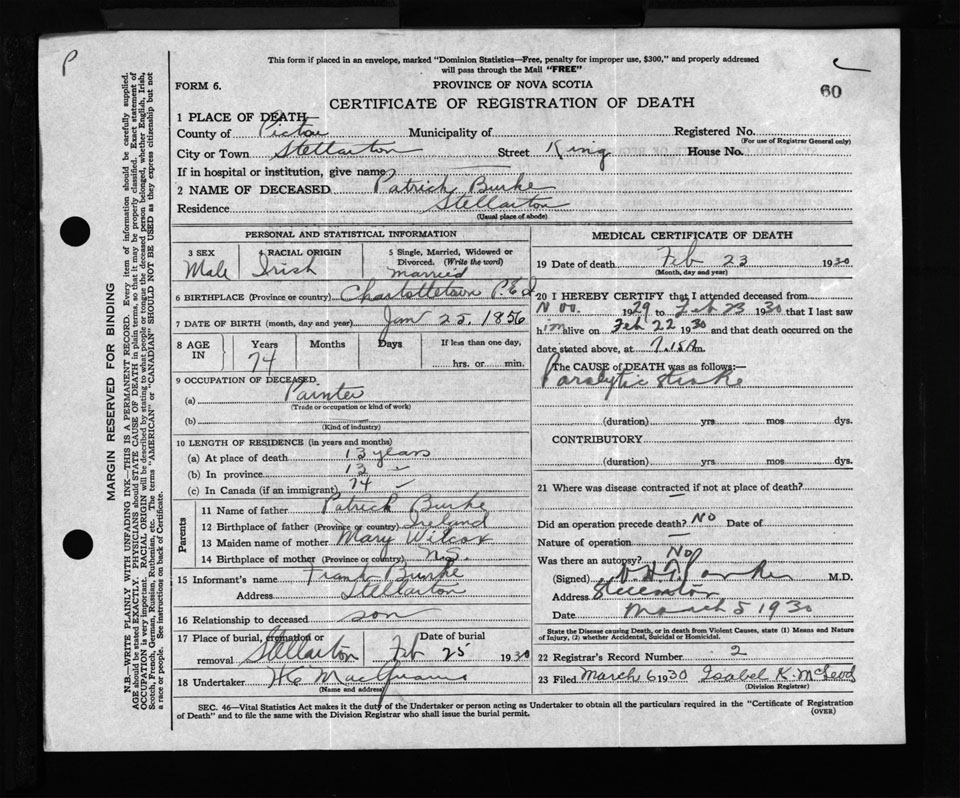 P
This form if placed in an envelope, marked "Dominion Statistics—Free, penalty for improper use, $300," and properly addressed
will pass through the Mail "FREE"
FORM 6.
PROVINCE OF NOVA SCOTIA
60
CERTIFICATE OF REGISTRATION OF DEATH
1 PLACE OF DEATH
County of Pictou Municipality of Registered No.
(For use of Registrar General only)
City or Town Stellarton Street King House No.
If in hospital or institution, give name
2 NAME OF DECEASED Patrick Burke
Residence Stellarton
(Usual place of abode)
PERSONAL AND STATISTICAL INFORMATION
3 SEX 4 RACIAL ORIGIN 5 Single, Married, Widowed or
Divorced. (Write the word)
Male Irish married
6 BIRTHPLACE (Province or country) Charlottetown P.E.I
7 DATE OF BIRTH (month, day and year) Jan 25, 1856
8 AGE IN Years Months Days If less than one day,
74 hrs. or min.
9 OCCUPATION OF DECEASED
(a) Painter
(Trade or occupation or kind of work)
(b)
(Kind of industry)
10 LENGTH OF RESIDENCE (in years and months)
(a) At place of death 13 years
(b) In province 13
(c) In Canada (if an immigrant) 74
Parents
11 Name of father Patrick Burke
12 Birthplace of father (Province or country) Ireland
13 Maiden name of mother Mary Wilcox
14 Birthplace of mother (Province or country) N.S.
15 Informant's name Frank Burke
Address Stellarton
16 Relationship to deceased son
17 Place of burial, cremation or Date of burial
removal Stellarton Feb 25 1930
18 Undertaker
(Name and address)
MEDICAL CERTIFICATE OF DEATH
19 Date of death Feb 23 1930
(Month, day and year)
20 I HEREBY CERTIFY that I attended deceased from
Nov. 1929 to Feb 23 1930 that I last saw
him alive on Feb 22 1930 and that death occurred on the
date stated above, at 7.15 Am
The CAUSE of DEATH was as follows:—
Paralytic Stroke
(duration) yrs mos dys.
CONTRIBUTORY
(duration) yrs. mos. dys.
21 Where was disease contracted if not at place of death?
Did an operation precede death? No Date of
Nature of operation
Was there an autopsy? No
(Signed) M.D.
Address Stellarton
Date March 5 1930
State the Disease causing Death, or in death from Violent Causes, state (1) Means and Nature
of Injury, (2) whether Accidental, Suicidal or Homicidal.
22 Registrar's Record Number 2
23 Filed March 6 1930 Isabel K. McLeod
(Division Registrar)
SEC. 46—Vital Statistics Act makes it the duty of the Undertaker or person acting as Undertaker to obtain all the particulars required in the "Certificate of Registration
of Death" and to file the same with the Division Registrar who shall issue the burial permit.
(OVER)
MARGIN RESERVED FOR BINDING
N.B.—WRITE PLAINLY WITH UNFADING INK—THIS IS A PERMANENT RECORD. Every item of information should be carefully supplied.
AGE should be stated EXACTLY. PHYSICIANS should STATE CAUSE OF DEATH in plain terms, so that it may be properly classified. Exact statement of
OCCUPATION is very important. RACIAL ORIGIN will be described by stating to what people or tongue the deceased person belonged, whether English, Irish,
Scotch, French, German, Russian, Ruthenian, etc. The terms "AMERICAN" or "CANADIAN" SHOULD NOT BE USED as they express citizenship but not
a race or people. See instructions on back of Certificate.